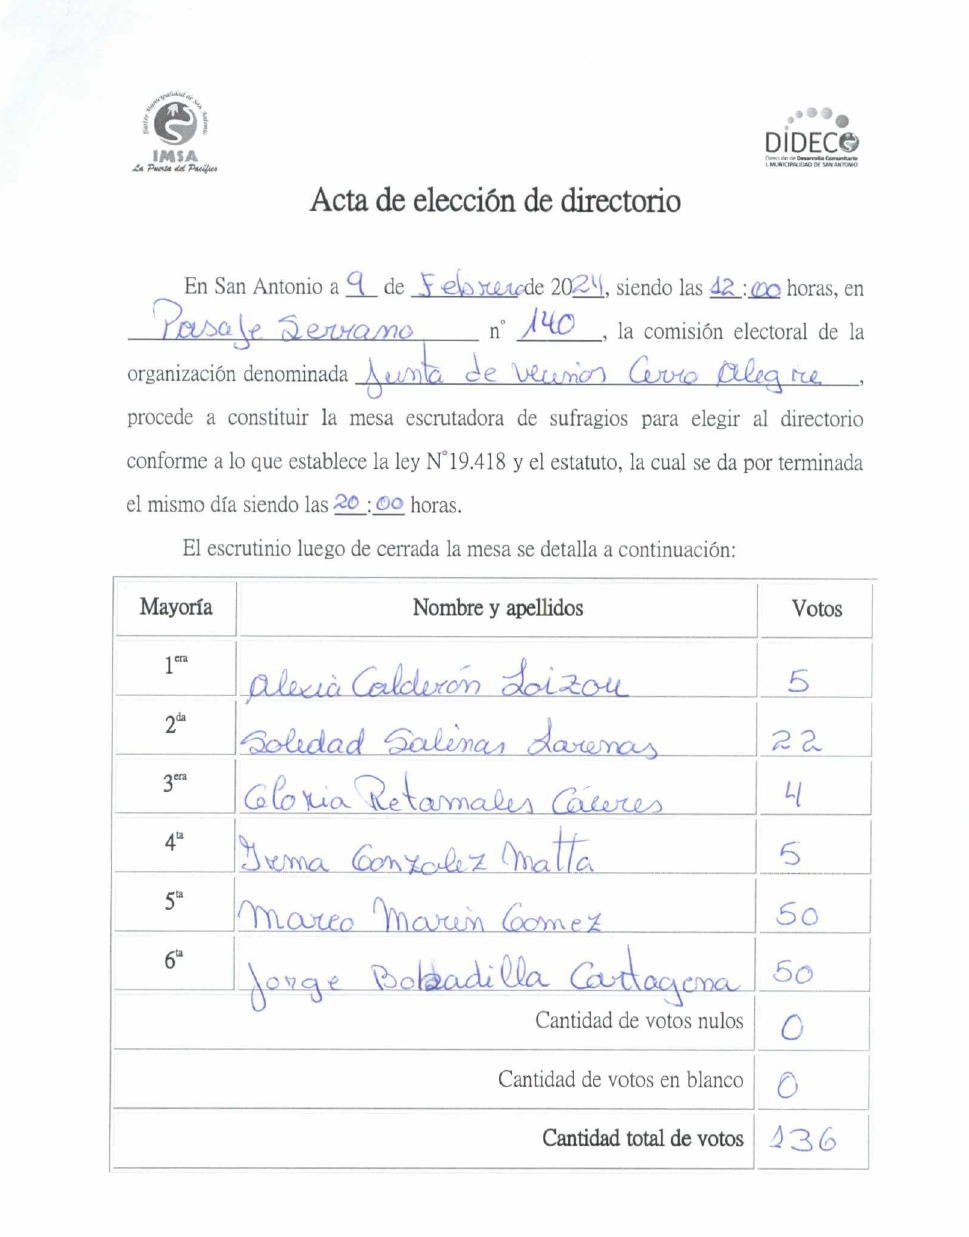 Ilustre Municipalidad de San Antonio
IMSA
La Puerta del Pacífico
DIDECO
Dirección de Desarrollo Comunitario
I. MUNICIPALIDAD DE SAN ANTONIO
Acta de elección de directorio
En San Antonio a 9 de Febrero de 2024, siendo las 12:00 horas, en
Pasaje Serrano n° 140, la comisión electoral de la
organización denominada Junta de vecinos Cerro Alegre,
procede a constituir la mesa escrutadora de sufragios para elegir al directorio
conforme a lo que establece la ley N°19.418 y el estatuto, la cual se da por terminada
el mismo día siendo las 20:00 horas.
El escrutinio luego de cerrada la mesa se detalla a continuación:
Mayoría Nombre y apellidos Votos
1era Alexia Calderón Loizou 5
2da Soledad Salinas Larenas 22
3era Gloria Retamales Cáceres 4
4ta Irma Gonzalez Matta 5
5ta Marco Marin Gomez 50
6ta Jorge Bobadilla Cartagena 50
Cantidad de votos nulos 0
Cantidad de votos en blanco 0
Cantidad total de votos 136